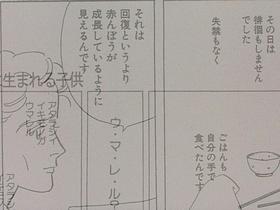 その日は
徘徊もしません
でした
失禁もなく
ごはんも
自分の手で
食べたんです
それは
回復というより
赤んぼうが
成長しているように
見えるんです
ウ・マ・レ・ル？
生まれる子供
アタラシイ
イキモノガ
ウマレル
アタラシ